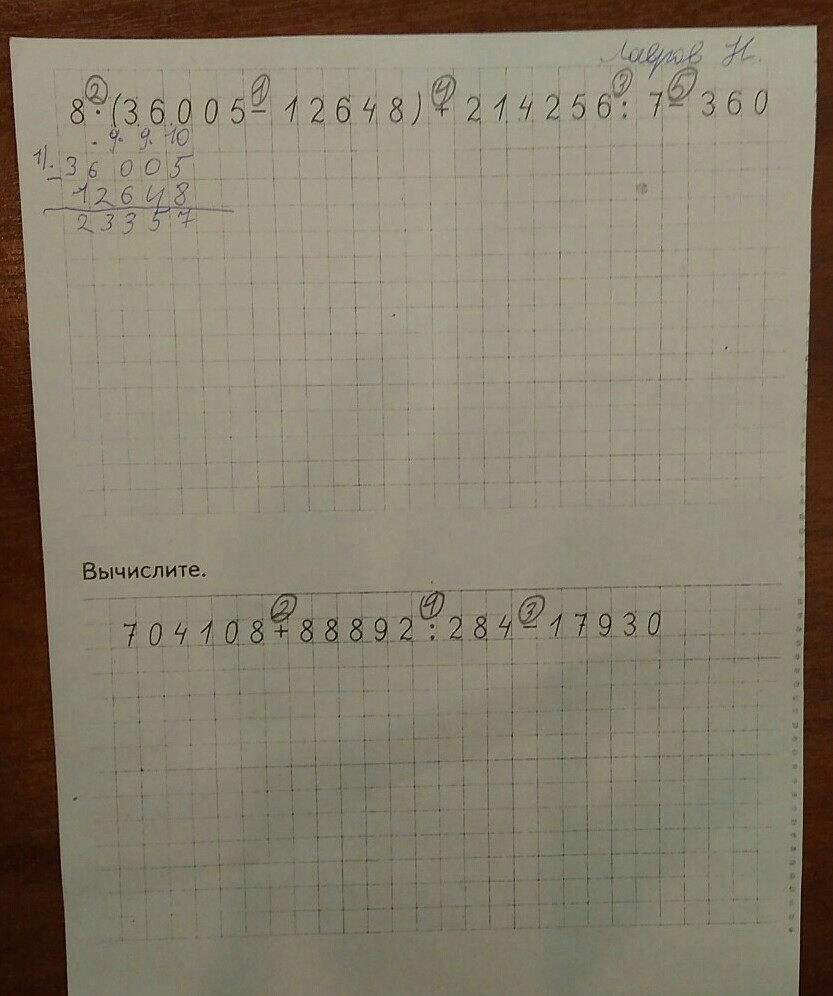 Лавров Н.
② ① ④ ③ ⑤
8·(36005-12648)+214256:7-360
. 9. 9. 10
1). 36005
- 12648
23357
Вычислите.
② ① ③
704108+88892:284-17930